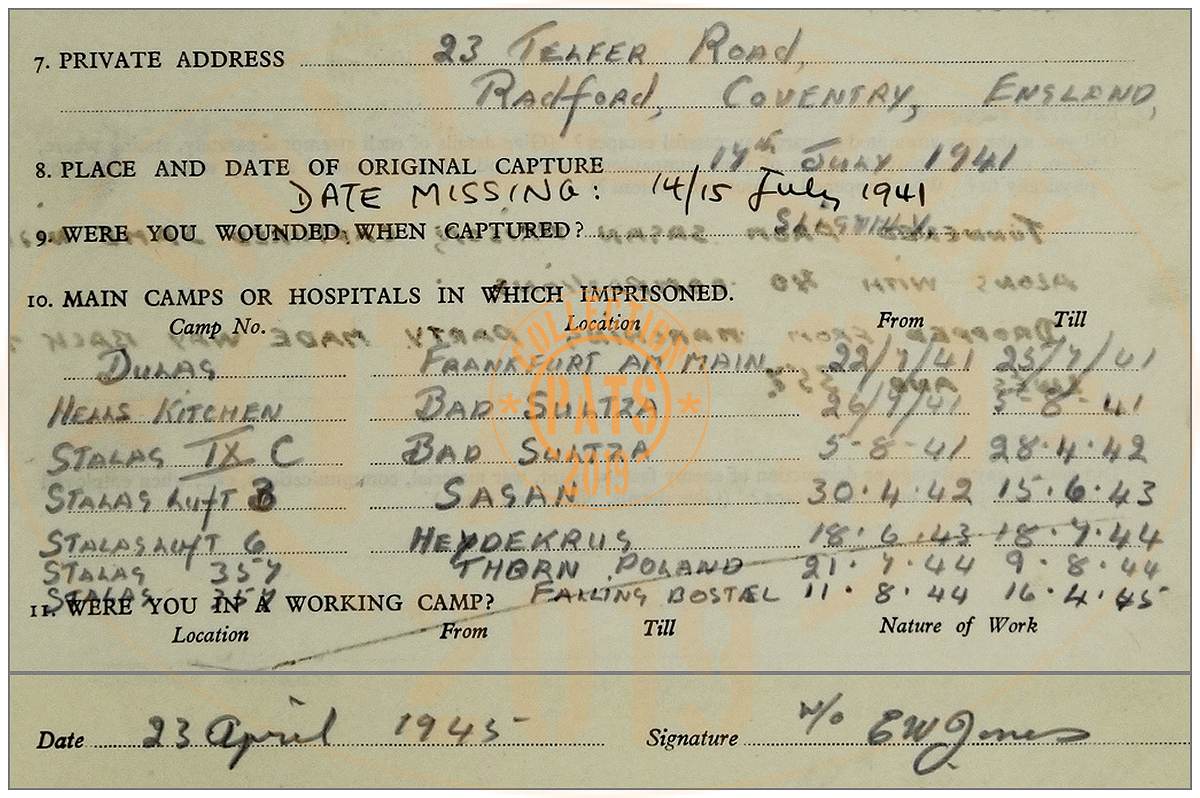 7. PRIVATE ADDRESS 23 TELFER ROAD,
Radford, COVENTRY, ENGLAND,
8. PLACE AND DATE OF ORIGINAL CAPTURE 14th JULY 1941
DATE MISSING: 14/15 July 1941
9. WERE YOU WOUNDED WHEN CAPTURED?
10. MAIN CAMPS OR HOSPITALS IN WHICH IMPRISONED.
Camp No. Location From Till
DULAG FRANKFURT AM MAIN 22/7/41 25/7/41
HELLS KITCHEN BAD SULTZA 26/7/41 5-8-41
STALAG IX C BAD SULTZA 5-8-41 28.4.42
STALAG Luft 3 SAGAN 30.4.42 15.6.43
STALAG LUFT 6 HEYDEKRUG 18.6.43 18.7.44
STALAG 357 THORN POLAND 21.7.44 9.8.44
STALAG 357 FALLING BOSTEL 11.8.44 16.4.45
11. WERE YOU IN A WORKING CAMP?
Location From Till Nature of Work
COLLECTION
PATS
2019
Date 23 April 1945 Signature W/O EW Jones